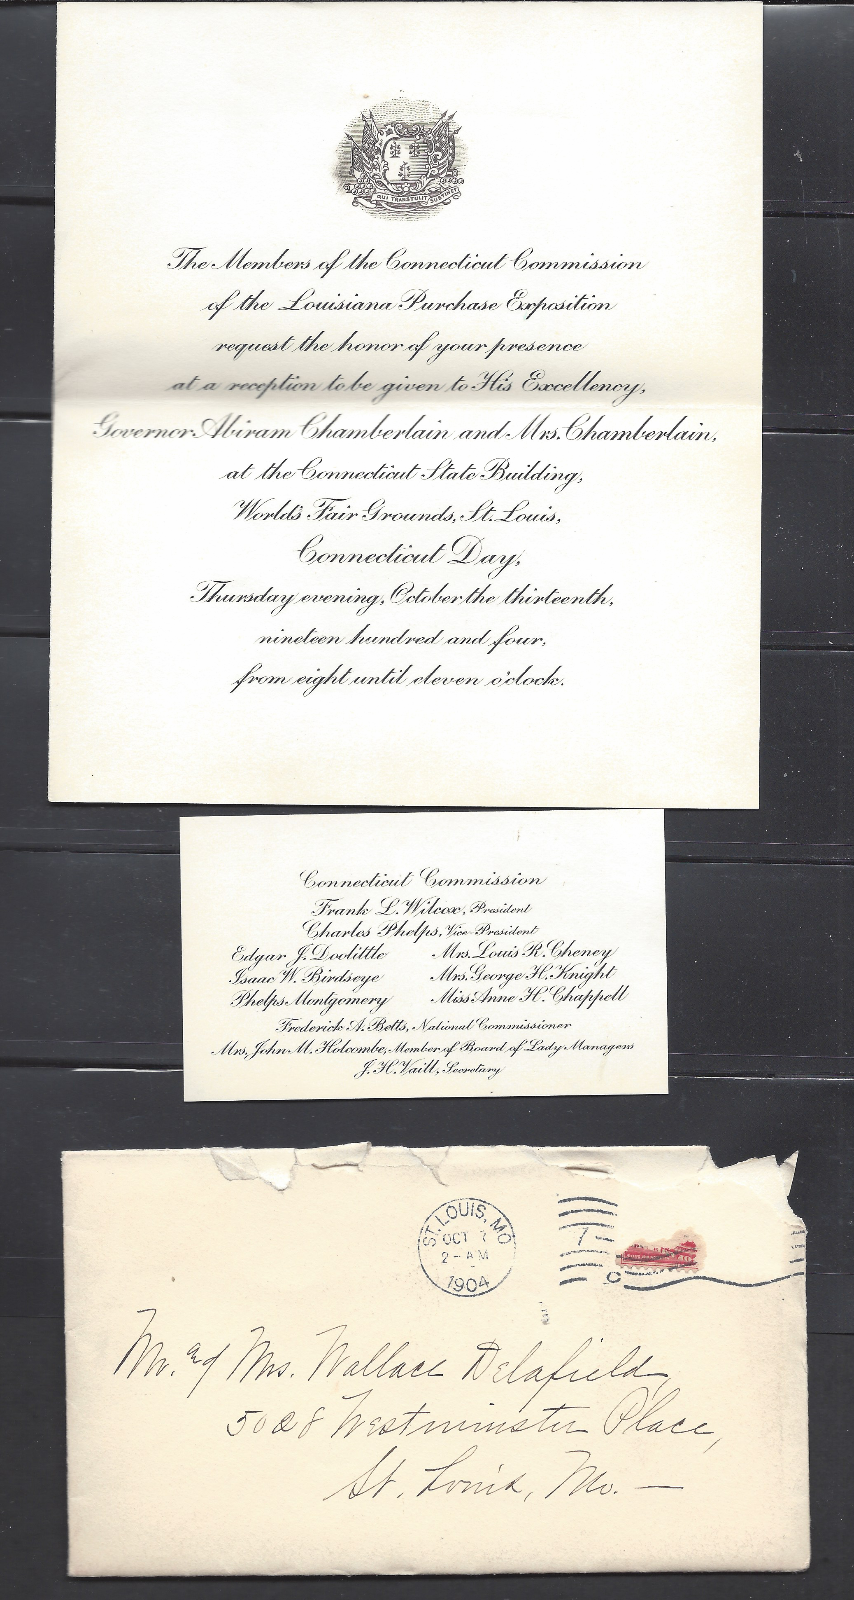 QUI TRANSTULIT SUSTINET
The Members of the Connecticut Commission
of the Louisiana Purchase Exposition
request the honor of your presence
at a reception to be given to His Excellency,
Governor Abiram Chamberlain and Mrs. Chamberlain,
at the Connecticut State Building,
World's Fair Grounds, St. Louis,
Connecticut Day,
Thursday evening, October the thirteenth,
nineteen hundred and four,
from eight until eleven o'clock.
Connecticut Commission
Frank L. Wilcox, President
Charles Phelps, Vice-President
Edgar J. Doolittle Mrs. Louis R. Cheney
Isaac W. Birdseye Mrs. George H. Knight
Phelps Montgomery Miss Anne H. Chappell
Frederick A. Betts, National Commissioner
Mrs. John M. Holcombe, Member of Board of Lady Managers
J. H. Vaill, Secretary
ST. LOUIS, MO
OCT 7
2-AM
1904
7
C
Mr. & Mrs. Wallace Delafield,
5028 Westminster Place,
St. Louis, Mo. —